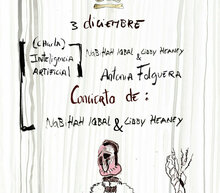 3 diciembre
(charla) Inteligencia Artificial
NaBiHaH IQBAL & LiBBY HEANEY
Antonia Folguera
Concierto de :
NaBiHAH IQBAL & LiBBY HEANEY